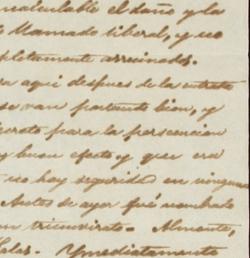 incalculable el daño y la
llamado liberal, y eco
completamente arruinados.
aqui despues de la entrada
se van portando bien, y
para la persecucion
y buen efecto y que era
no hay seguridad en ningun
Antes de ayer fué nombrado
un triunvirato. Almonte,
Salas. Ymediatamente